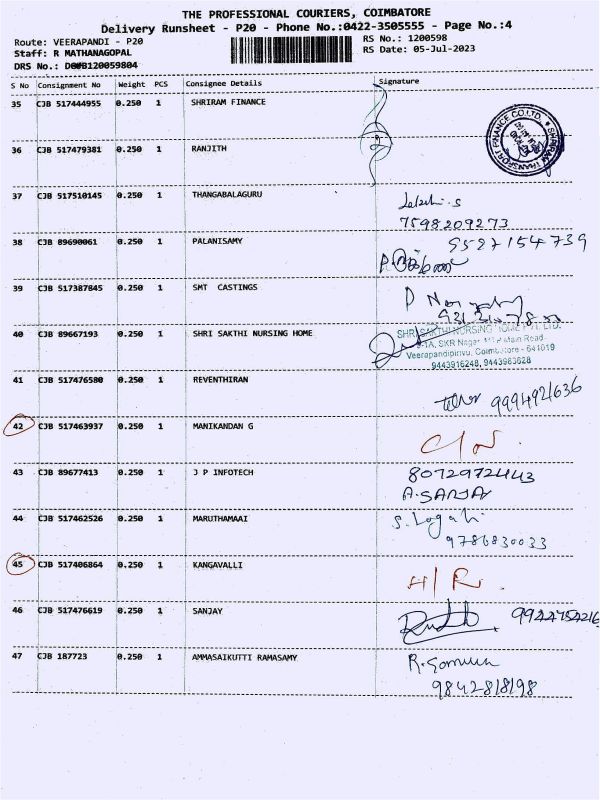 THE PROFESSIONAL COURIERS, COIMBATORE
Delivery Runsheet - P20 - Phone No.:0422-3505555 - Page No.:4
Route: VEERAPANDI - P20
RS No.: 1200598
Staff: R MATHANAGOPAL
RS Date: 05-Jul-2023
DRS No.:
S No Consignment No Weight PCS Consignee Details Signature
35 CJB 517444955 0.250 1 SHRIRAM FINANCE
SHRIRAM TRANSPORT FINANCE CO.LTD.
36 CJB 517479381 0.250 1 RANJITH
37 CJB 517510145 0.250 1 THANGABALAGURU
7598209273
38 CJB 89690061 0.250 1 PALANISAMY
9527154739
39 CJB 517387845 0.250 1 SMT CASTINGS
40 CJB 89667193 0.250 1 SHRI SAKTHI NURSING HOME
SHRI SAKTHI NURSING HOME PVT. LTD.
SKR Nagar, Main Road
Veerapandipirivu, Coimbatore - 641019
9443916248, 9443983628
41 CJB 517476580 0.250 1 REVENTHIRAN
9994921636
42 CJB 517463937 0.250 1 MANIKANDAN G
43 CJB 89677413 0.250 1 J P INFOTECH
8072972443
A.SANJAY
44 CJB 517462526 0.250 1 MARUTHAMAAI
9786830033
45 CJB 517406864 0.250 1 KANGAVALLI
H/R.
46 CJB 517476619 0.250 1 SANJAY
9944754216
47 CJB 187723 0.250 1 AMMASAIKUTTI RAMASAMY
9842818198